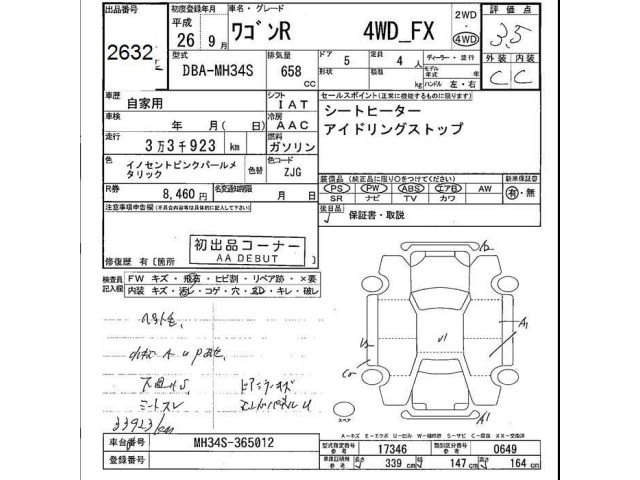 出品番号 初度登録年月 車名・グレード 2WD 評価点
2632 平成 26年9月 ワゴンR 4WD_FX 4WD 3.5
型式 排気量 ドア 5 定員 4人 ディーラー・並行 外装 内装
DBA-MH34S 658 CC 形状 積載 kg モデル年式 年 ハンドル 左・右 C C
車歴 シフト セールスポイント(正常に機能するものに限ります)
自家用 IAT シートヒーター
車検 年 月(日) 冷房 AAC アイドリングストップ
走行 3万3千923km 燃料 ガソリン
色 イノセントピンクパールメタリック 色替 色コード ZJG
装備品(純正品に限り○をつけてください) 新車保証書
PS PW ABS エアB AW 有・無
SR ナビ TV カワ
R券 8,460円 名変通知期限 月 日
後日品 保証書・取説
注意事項申告欄(不具合内容等は具体的に記入して下さい)
初出品コーナー
AA DEBUT
修復歴 有〔箇所
検査員記入欄 FW キズ・飛石・ヒビ割・リペア跡・×要
内装 キズ・汚レ・コゲ・穴・ヌレ・キレ・破レ
シートスレ
33923km
A1
A1
U1
スペア
A-キズ E-エクボ U-凹み W-補修跡 S-サビ C-腐食 X-要交換 XX-交換済
車台番号 MH34S-365012 型式指定番号 参考 17346 類別区分番号 参考 0649
登録番号 車庫証明用 参考 長さ 339cm 幅 147cm 高さ 164cm